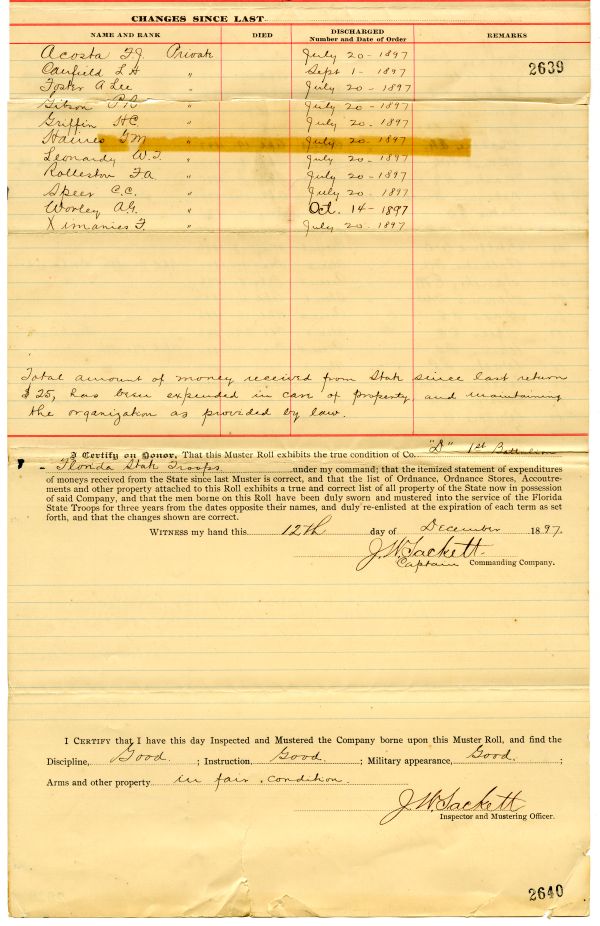 CHANGES SINCE LAST
NAME AND RANK DIED DISCHARGED Number and Date of Order REMARKS
Acosta F.J. Private July 20 - 1897
Canfield L H " Sept 1 - 1897 2639
Foster A Lee " July 20 - 1897
Gibson P.B " July 20 - 1897
Griffin H C " July 20 - 1897
Haines G M " July 20 - 1897
Leonardy W. I. " July 20 - 1897
Rolleston F A. " July 20 - 1897
Speer C.C. " July 20 - 1897
Worley A.G. " Oct. 14 - 1897
Ximanies F. " July 20 - 1897
Total amount of money received from State since last return
$25, has been expended in care of property and maintaining
the organization as provided by law.
I Certify on Honor, That this Muster Roll exhibits the true condition of Co. "D" 1st Battalion
Florida State Troops under my command; that the itemized statement of expenditures
of moneys received from the State since last Muster is correct, and that the list of Ordnance, Ordnance Stores, Accoutre-
ments and other property attached to this Roll exhibits a true and correct list of all property of the State now in possession
of said Company, and that the men borne on this Roll have been duly sworn and mustered into the service of the Florida
State Troops for three years from the dates opposite their names, and duly re-enlisted at the expiration of each term as set
forth, and that the changes shown are correct.
WITNESS my hand this 12th day of December 1897.
J. W. Sackett
Captain Commanding Company.
I CERTIFY that I have this day Inspected and Mustered the Company borne upon this Muster Roll, and find the
Discipline, Good. ; Instruction, Good. ; Military appearance, Good. ;
Arms and other property in fair condition.
J. W. Sackett
Inspector and Mustering Officer.
2640